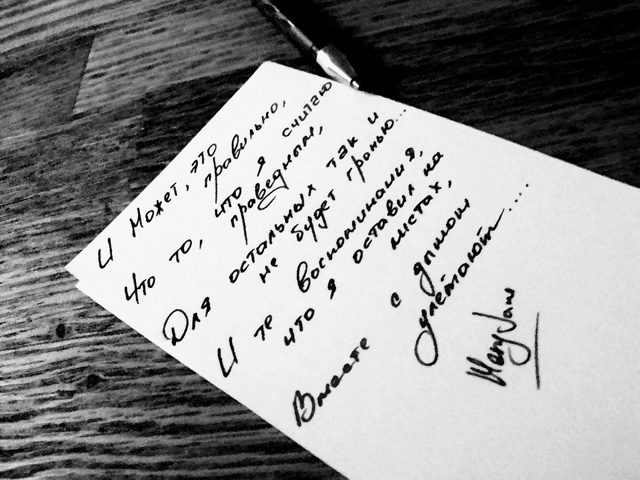 И может, это
правильно,
Что то, что я считаю
праведным,
Для остальных так и
не будет гранью...
И те воспоминания,
что я оставил на
листах,
Вместе с дымом
улетают....
Mary Jane